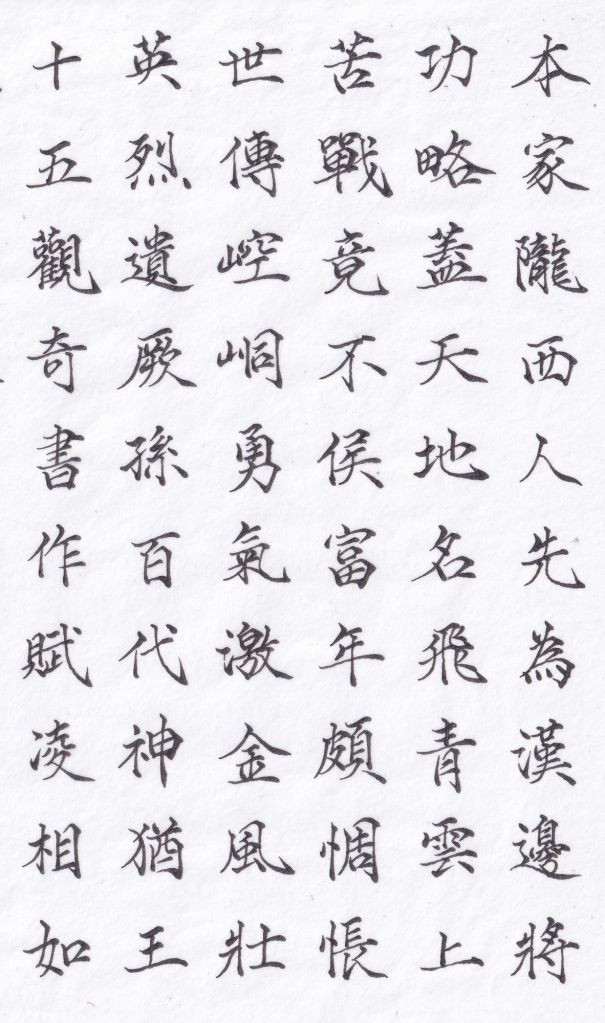 本家隴西人先為漢邊將
功略蓋天地名飛青雲上
苦戰竟不侯富年頗惆悵
世傳崆峒勇氣激金風壯
英烈遺厥孫百代神猶王
十五觀奇書作賦凌相如